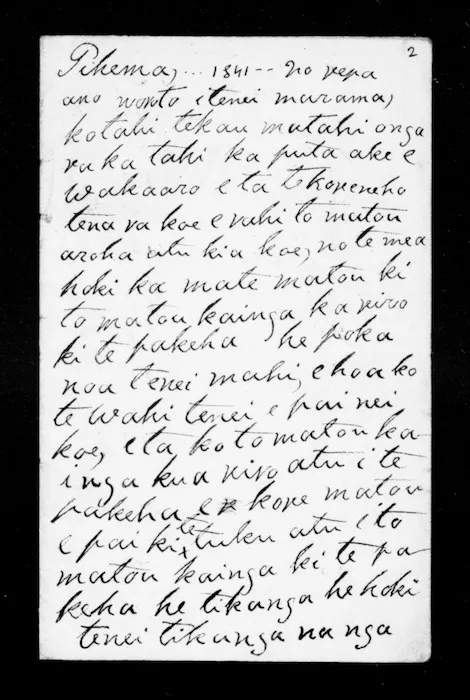 2
Pihema, .. 1841 -- No repa
ano wonto i tenei marama,
kotahi tekau matahi o nga
ra ka tahi ka puta ake e
wakaaro e ta te Koreneho
tena ra koe e rahi to matou
aroha atu kia koe, no te mea
hoki ka mate matou ki
to matou kainga ka riro
ki te pakeha he poka
noa tenei mahi, e hoa ko
te wahi tenei e pai nei
koe, e ta, ko to matou ka-
inga kua riro atu i te
pakeha e kore matou
e pai ki te tuku atu i to
matou kainga ki te pa-
keha he tikanga he hoki
tenei tikanga na nga